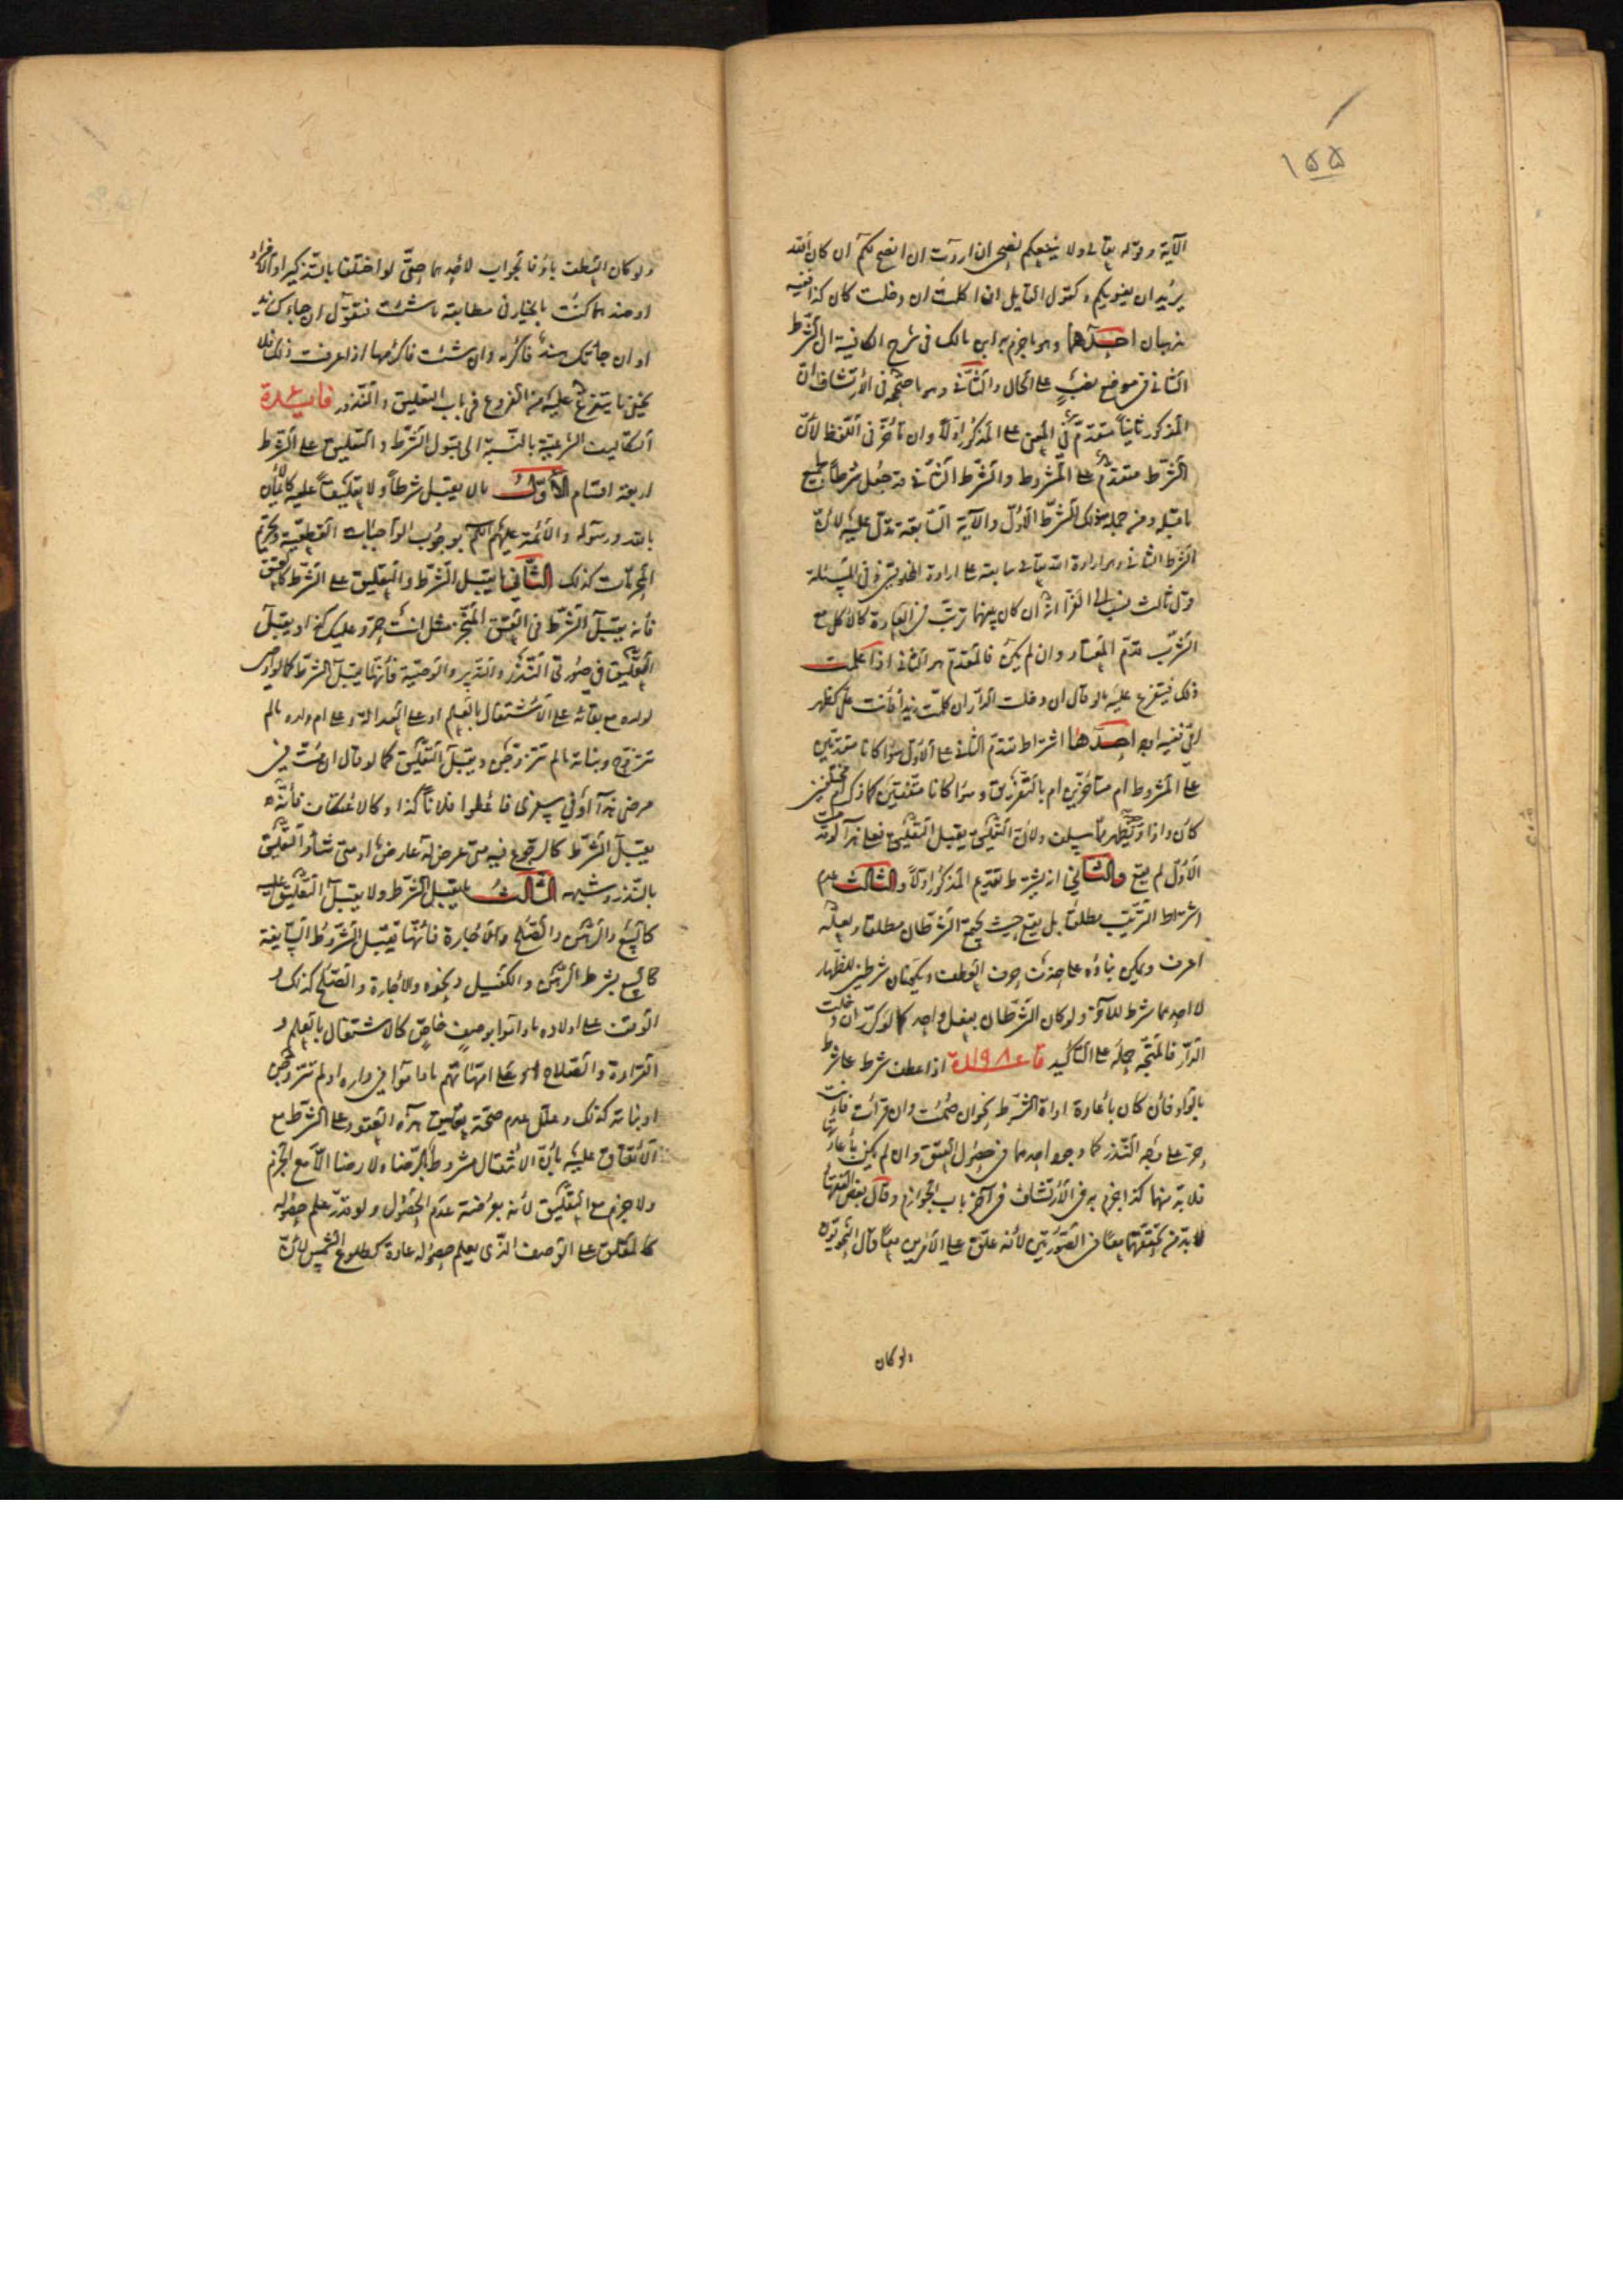 ١٥٥
الآية وقوله تعالى ولا ينفعكم نصحي ان اردت ان انصح لكم ان كان الله
يريد ان يغويكم وكقول القايل ان اكلت ان دخلت كان كذا ففيه
مذهبان احدهما وهو ما جزم به ابن مالك في شرح الكافية ان الشرط
الثاني في موضع نصب على الحال والثاني وهو ما صححه في الارتشاف ان
المذكور ثانيا متقدم في المعنى على المذكور اولا وان تأخر في اللفظ لأن
الشرط متقدم على المشروط والشرط الثاني قد جعل شرطا لجميع
ما قبله ومن جملة ذلك الشرط الاول والآية السابقة تدل عليه لأن
الشرط الثاني وهو ارادة الله تعالى سابقة على ارادة المخلوقين في المسئلة
قول ثالث نسب الى الفراء انه ان كان بينهما ترتب في العادة كالاكل مع
الشرب قدم المعتاد وان لم يكن فالمقدم هو الثاني اذا علمت
ذلك فيتفرع عليه ما لو قال ان دخلت الدار ان كلمت زيدا فأنت علي كظهر
امي ففيه اوجه احدها اشتراط تقدم الثاني على الاول سواء كانا متقدمين
على المشروط ام متأخرين ام بالتفريق وسواء كانا متفقتين كما ذكر ام مختلفتين
كان واذا وتظهر مما سبق ولأن التعليق يقبل التعليق فعلى هذا لو قدمت
الاول لم يقع والثاني انه يشترط تقديم المذكور اولا والثالث عدم
اشتراط الترتيب مطلقا بل يقع حيث يجتمع الشرطان مطلقا ولعله
اعرف ويمكن بناؤه على حذف حرف العطف ويكونان شرطين للظهار
لا احدهما شرط للآخر ولو كان الشرطان بفعل واحد كما لو كرر ان دخلت
الدار فالمتجه حمله على التأكيد قاعدة ١٩٨ اذا عطف شرط على شرط
بالواو فأن كان بأعادة اداة الشرط نحو ان صمت وان قرأت فانت
حر على وجه النذر كفا وجود احدهما في حصول العتق وان لم يكن بأعادتها
فلا بد منهما كذا جزم به في الارتشاف في آخر باب الجوازم وقال بعض الفقهاء
لا بد من تحققهما معا في الصورتين لأنه علق على الامرين معا قال النحويون
ولو كان
ولو كان العطف بأو فالجواب لأحدهما حتى لو اختلفا بالتذكير او الافراد
او ضدهما كنت بالخيار في مطابقة ما شئت فتقول ان جاءك زيد
او ان جاءتك هند فاكرمه وان شئت فاكرمها اذا عرفت ذلك فلا
يخفى ما يتفرع عليه من الفروع في باب التعليق والنذور فايدة
التكاليف الشرعية بالنسبة الى قبول الشرط والتعليق على الشرط
اربعة اقسام الاول ما لا يقبل شرطا ولا تعليقا عليه كالايمان
بالله ورسوله والائمة عليهم السلام بوجوب الواجبات القطعية وتحريم
المحرمات كذلك الثاني ما يقبل الشرط والتعليق على الشرط كالعتق
فأنه يقبل الشرط في العتق المنجز مثل انت حر وعليك كذا ويقبل
التعليق في صورتي النذر والتدبير والوصية فأنها يقبل الشرط كما لو اوصى
لولده مع بقائه على الاشتغال بالعلم او على العدالة وعلى ام ولده ما لم
تتزوج وبناته ما لم تتزوجن ويقبل التعليق كما لو قال ان مت في
مرضي هذا او في سفري فاعطوا فلانا كذا وكالاعتكاف فأنه
يقبل الشرط كالرجوع فيه متى عرض له عارض او متى شاء والتعليق
بالنذر وشبهه الثالث ما يقبل الشرط ولا يقبل التعليق عليه
كالبيع والرهن والصلح والاجارة فأنها تقبل الشروط السايغة
كالبيع بشرط الرهن والكفيل ونحوه والاجارة والصلح كذلك و
الوقف على اولاده ما داموا بوصف خاص كالاشتغال بالعلم و
القراءة والصلاح او على امهاتهم ما داموا في داره او لم تتزوجن
او بناته كذلك وعلل عدم صحة تعليق هذه العقود على الشرط مع
الاتفاق عليه بأن الانتقال مشروط بالرضا ولا رضا الا مع الجزم
ولا جزم مع التعليق لأنه بعرضة عدم الحصول ولو قدر علم حصوله
كالمعلق على الوصف الذي يعلم حصوله عادة كطلوع الشمس لأن